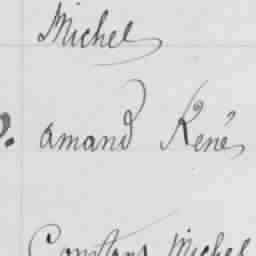 Michel
amand René
Constans Michel